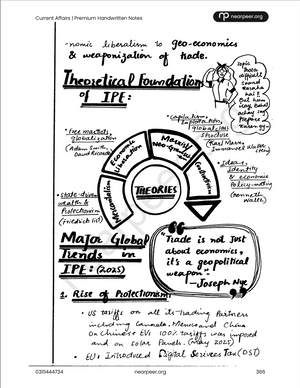 Current Affairs | Premium Handwritten Notes
nearpeer.org
-nomic liberalism to geo-economics
& weaponization of trade.
Theoretical Foundation
of IPE:
• Capitalism,
global class
structure
(Karl Marx,
• Free markets,
globalization
(Adam Smith,
David Ricardo)
Economic
Liberalism
Marxist/
Mercantilism
THEORIES
• Ideas,
identity
& economic
Policy-making
(Kenneth
Waltz)
• State-driven
wealth &
Protectionism
(Friedrich list)
Major Global
Trends in
IPE: (2025)
"Trade is not Just
about economics,
it's a geopolitical
weapon."
—Joseph Nye
1. Rise of Protectionism:
• US tariffs on all its Trading Partners
including Canada, Mexico and China
on Chinese EVs 100% tariffs was imposed
and on Solar Panels. (May 2025)
• EU: Introduced Digital Services Tax (DST)
0311444734
nearpeer.org
366